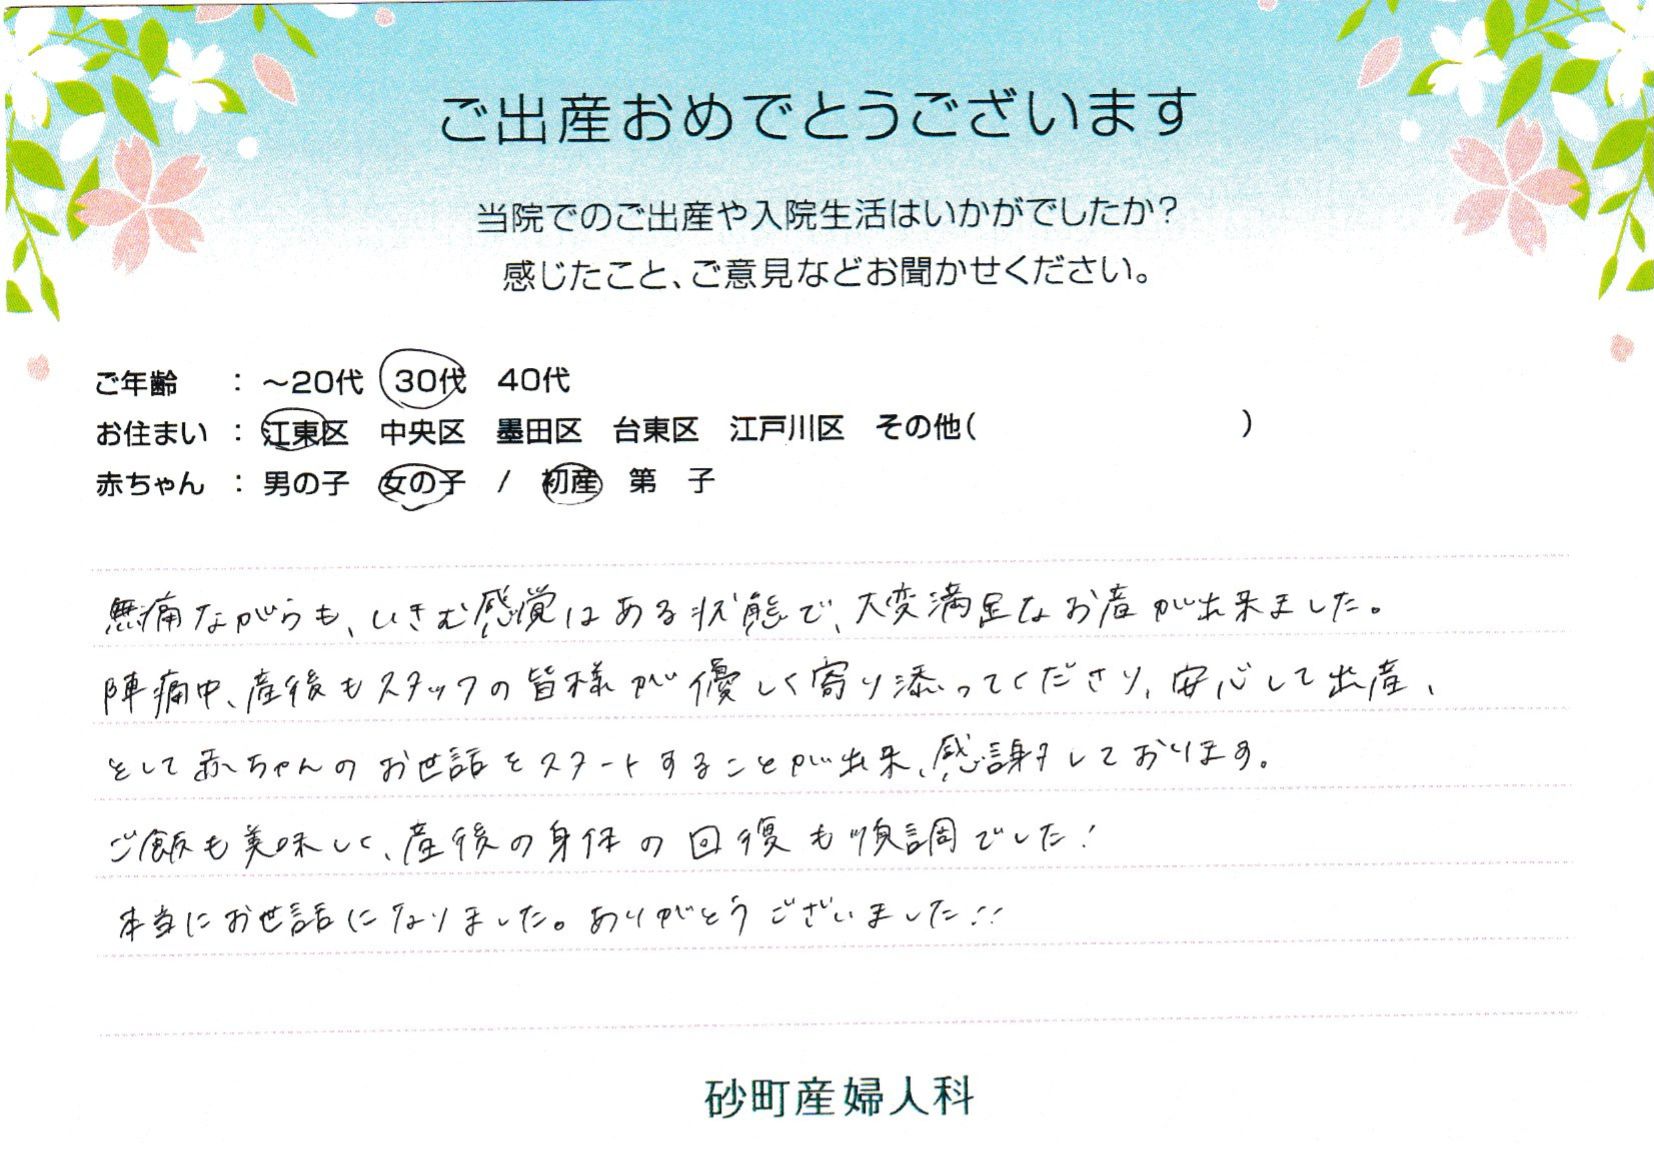 ご出産おめでとうございます
当院でのご出産や入院生活はいかがでしたか？
感じたこと、ご意見などお聞かせください。
ご年齢 ： ～20代 30代 40代
お住まい ： 江東区 中央区 墨田区 台東区 江戸川区 その他( )
赤ちゃん ： 男の子 女の子 / 初産 第 子
無痛ながらも、いきむ感覚はある状態で、大変満足なお産が出来ました。
陣痛中、産後もスタッフの皆様が優しく寄り添ってくださり、安心して出産、
として赤ちゃんのお世話をスタートすることが出来、感謝しております。
ご飯も美味しく、産後の身体の回復も順調でした！
本当にお世話になりました。ありがとうございました！！
砂町産婦人科